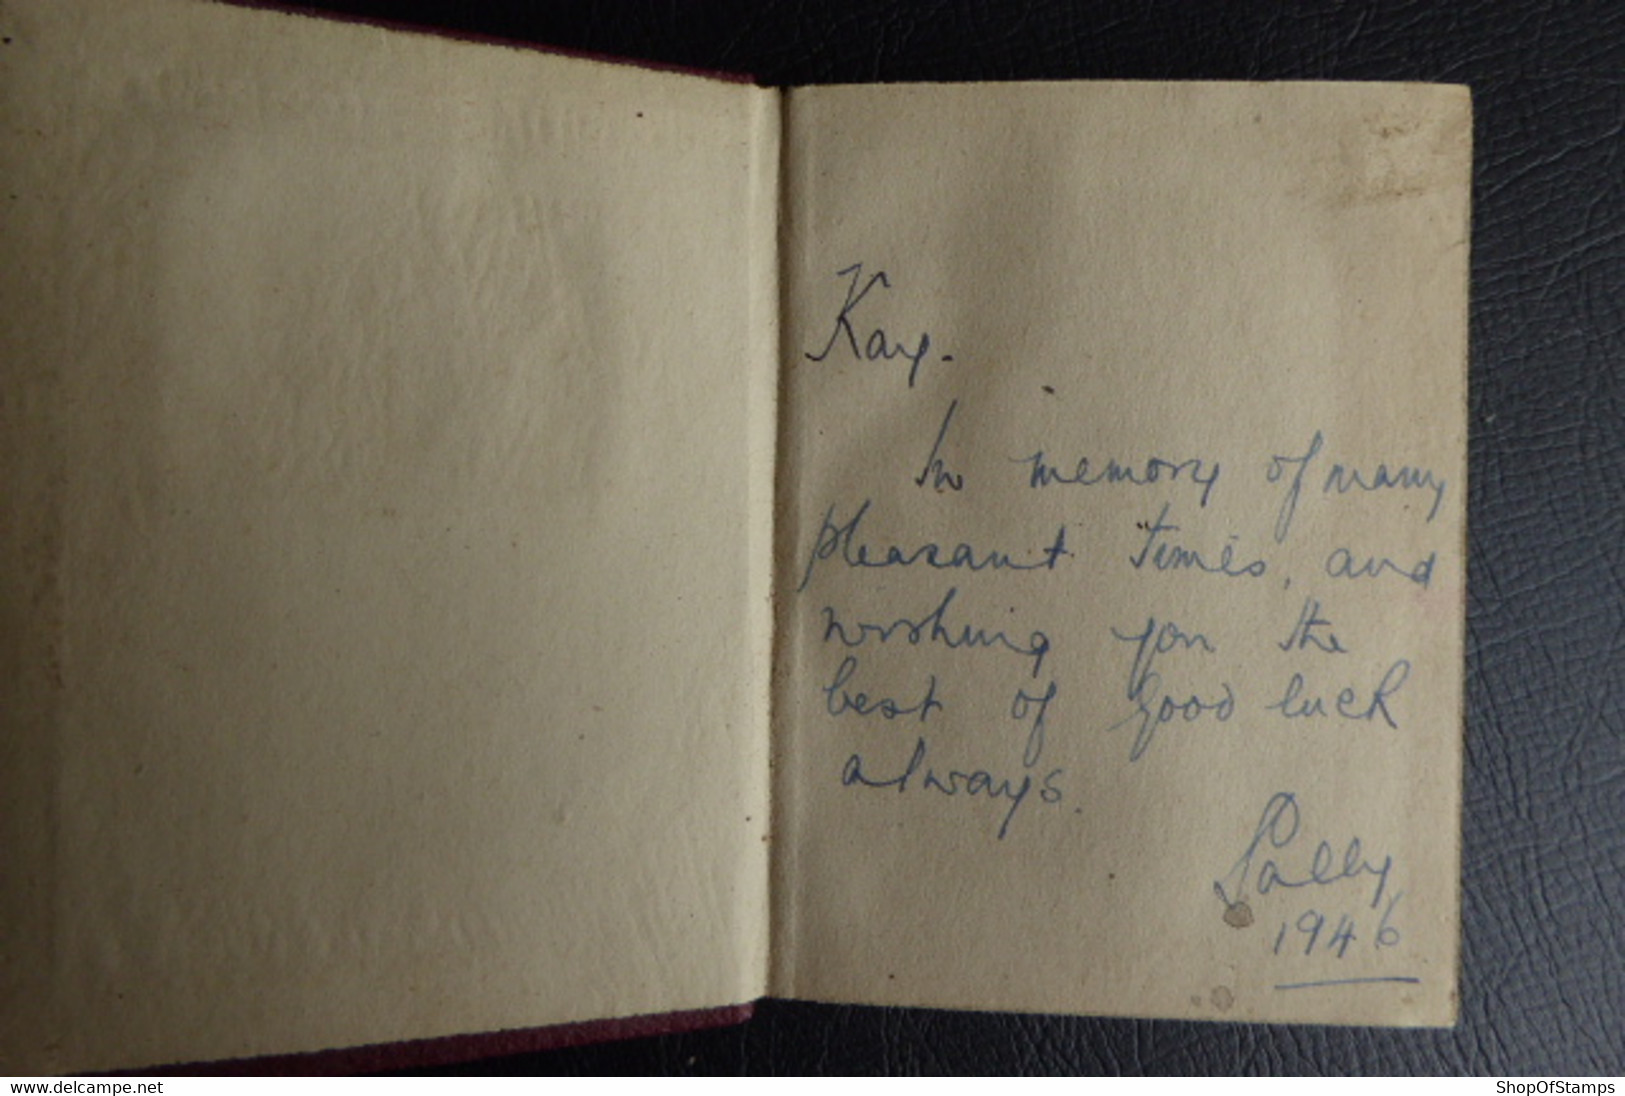 Kay.
In memory of many
pleasant times, and
wishing you the
best of good luck
always.
Sally
1946
www.delcampe.net
ShopOfStamps